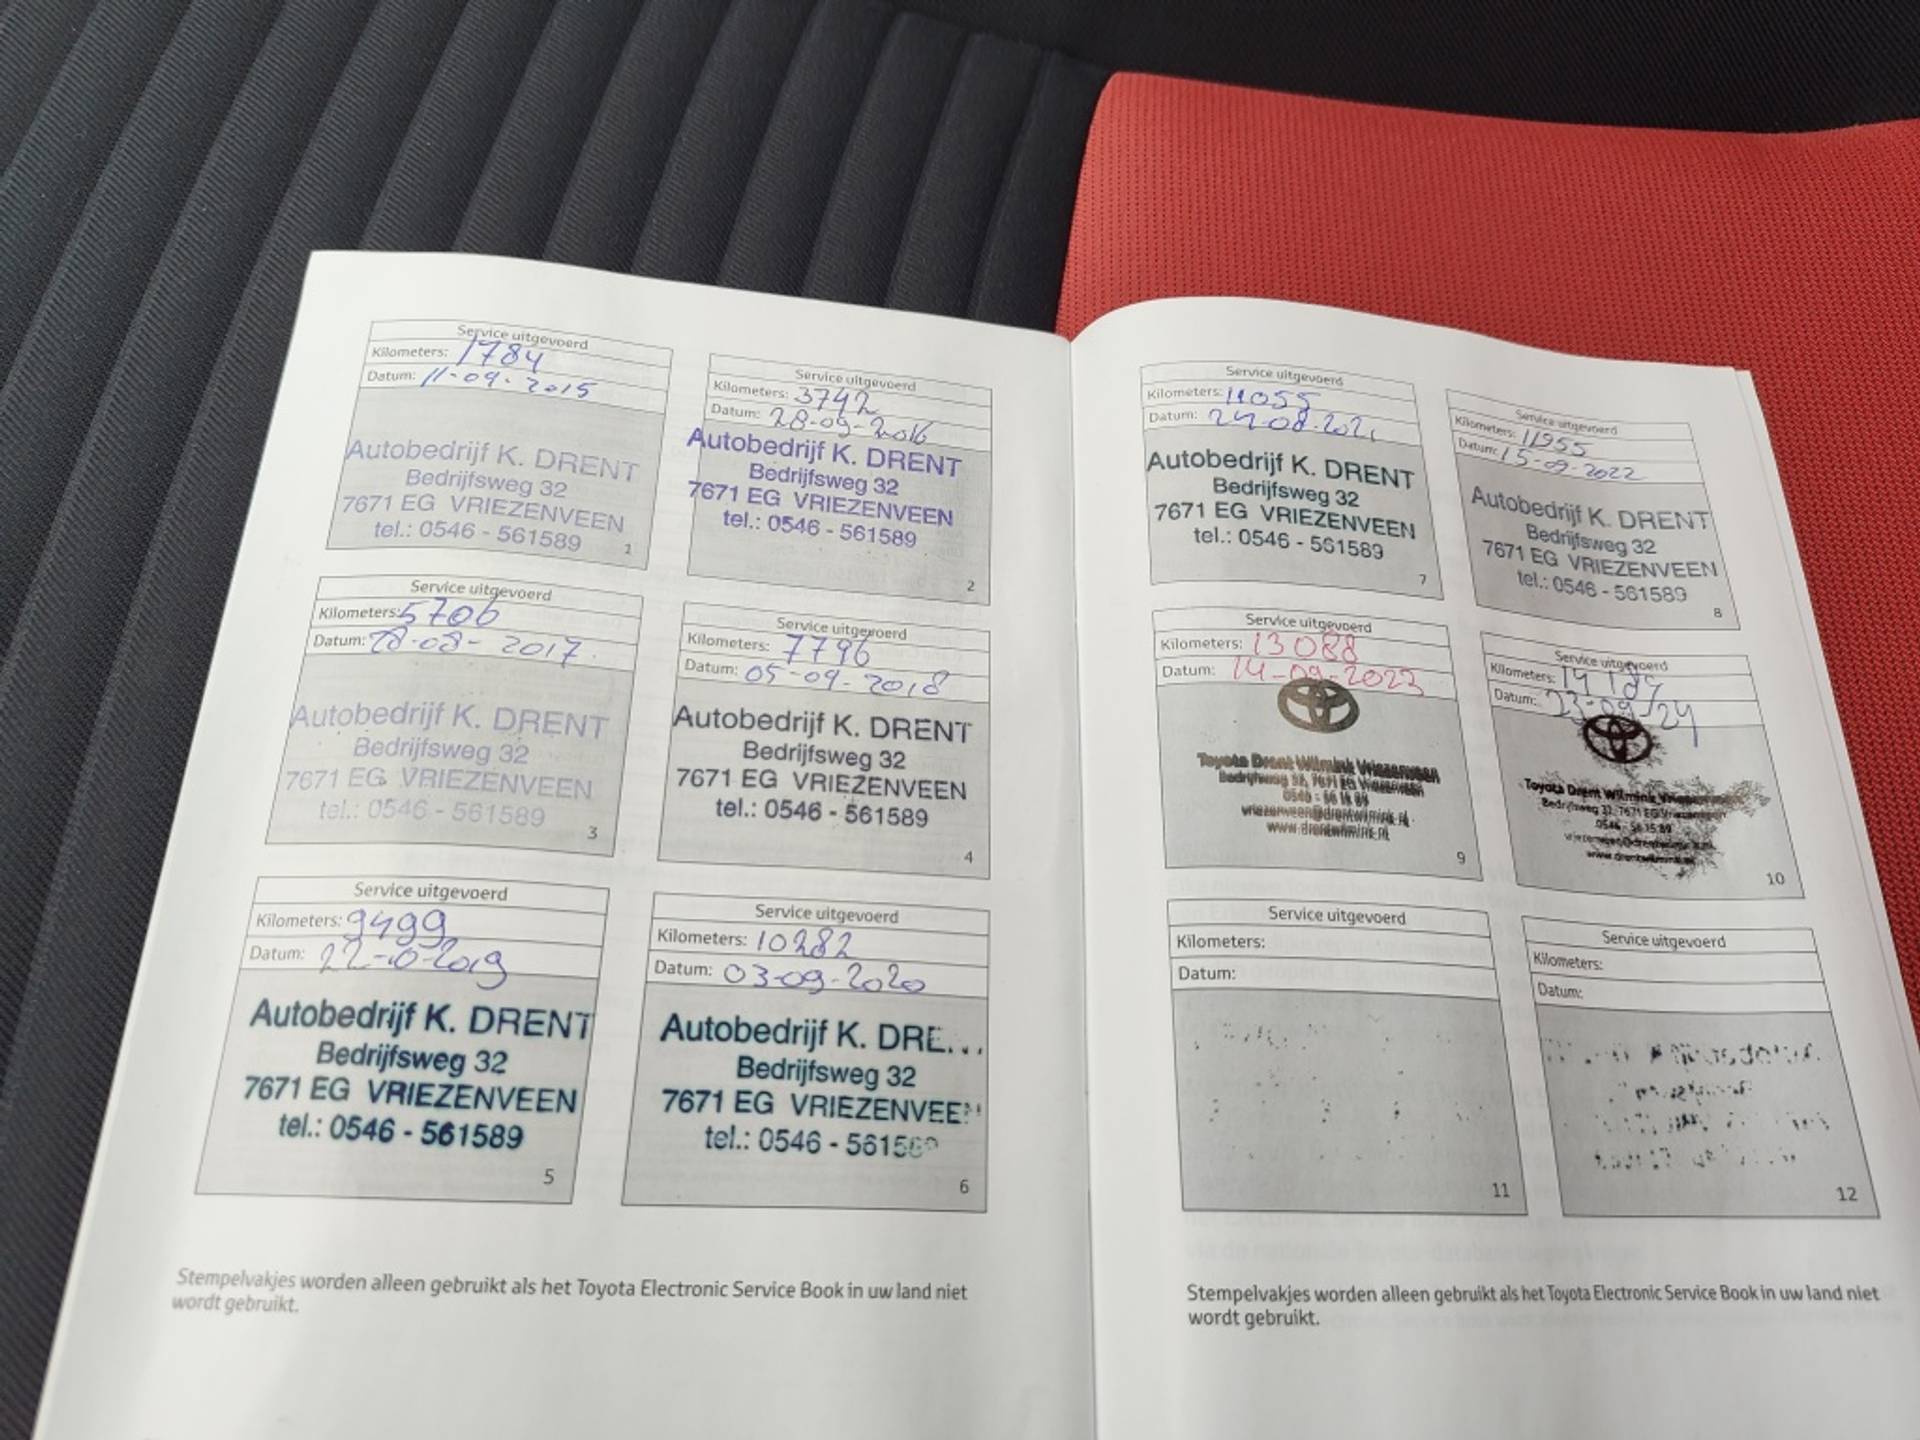 Service uitgevoerd
Kilometers: 1784
Datum: 11-09-2015
Autobedrijf K. DRENT
Bedrijfsweg 32
7671 EG VRIEZENVEEN
tel.: 0546 - 561589
1
Service uitgevoerd
Kilometers: 3742
Datum: 28-09-2016
Autobedrijf K. DRENT
Bedrijfsweg 32
7671 EG VRIEZENVEEN
tel.: 0546 - 561589
2
Service uitgevoerd
Kilometers: 5706
Datum: 28-08-2017
Autobedrijf K. DRENT
Bedrijfsweg 32
7671 EG VRIEZENVEEN
tel.: 0546 - 561589
3
Service uitgevoerd
Kilometers: 7796
Datum: 05-09-2018
Autobedrijf K. DRENT
Bedrijfsweg 32
7671 EG VRIEZENVEEN
tel.: 0546 - 561589
4
Service uitgevoerd
Kilometers: 9499
Datum: 22-10-2019
Autobedrijf K. DRENT
Bedrijfsweg 32
7671 EG VRIEZENVEEN
tel.: 0546 - 561589
5
Service uitgevoerd
Kilometers: 10282
Datum: 03-09-2020
Autobedrijf K. DRE
Bedrijfsweg 32
7671 EG VRIEZENVEE
tel.: 0546 - 56158
6
Stempelvakjes worden alleen gebruikt als het Toyota Electronic Service Book in uw land niet
wordt gebruikt.
Service uitgevoerd
Kilometers: 11055
Datum: 24-08-2021
Autobedrijf K. DRENT
Bedrijfsweg 32
7671 EG VRIEZENVEEN
tel.: 0546 - 561589
7
Service uitgevoerd
Kilometers: 11955
Datum: 15-09-2022
Autobedrijf K. DRENT
Bedrijfsweg 32
7671 EG VRIEZENVEEN
tel.: 0546 - 561589
8
Service uitgevoerd
Kilometers: 13088
Datum: 14-09-2023
Toyota Drent Wilmink Vriezenveen
Bedrijfsweg 32, 7671 EG Vriezenveen
0546 - 56 15 89
vriezenveen@drentwilmink.nl
www.drentwilmink.nl
9
Service uitgevoerd
Kilometers:
Datum: 23-09-24
Toyota Drent Wilmink Vriezenveen
Bedrijfsweg 32, 7671 EG Vriezenveen
0546 - 56 15 89
vriezenveen@drentwilmink.nl
www.drentwilmink.nl
10
Service uitgevoerd
Kilometers:
Datum:
11
Service uitgevoerd
Kilometers:
Datum:
12
Stempelvakjes worden alleen gebruikt als het Toyota Electronic Service Book in uw land niet
wordt gebruikt.